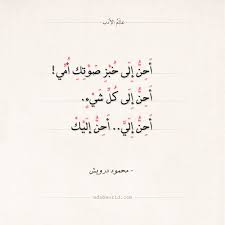 عالم الأدب
أَحِنُّ إِلَى خُبْزِ صَوْتِكِ أُمِّي!
أَحِنُّ إِلَى كُلِّ شَيْءٍ.
أَحِنُّ إِلَيَّ.. أَحِنُّ إِلَيْكْ
- محمود درويش -
adabworld.com